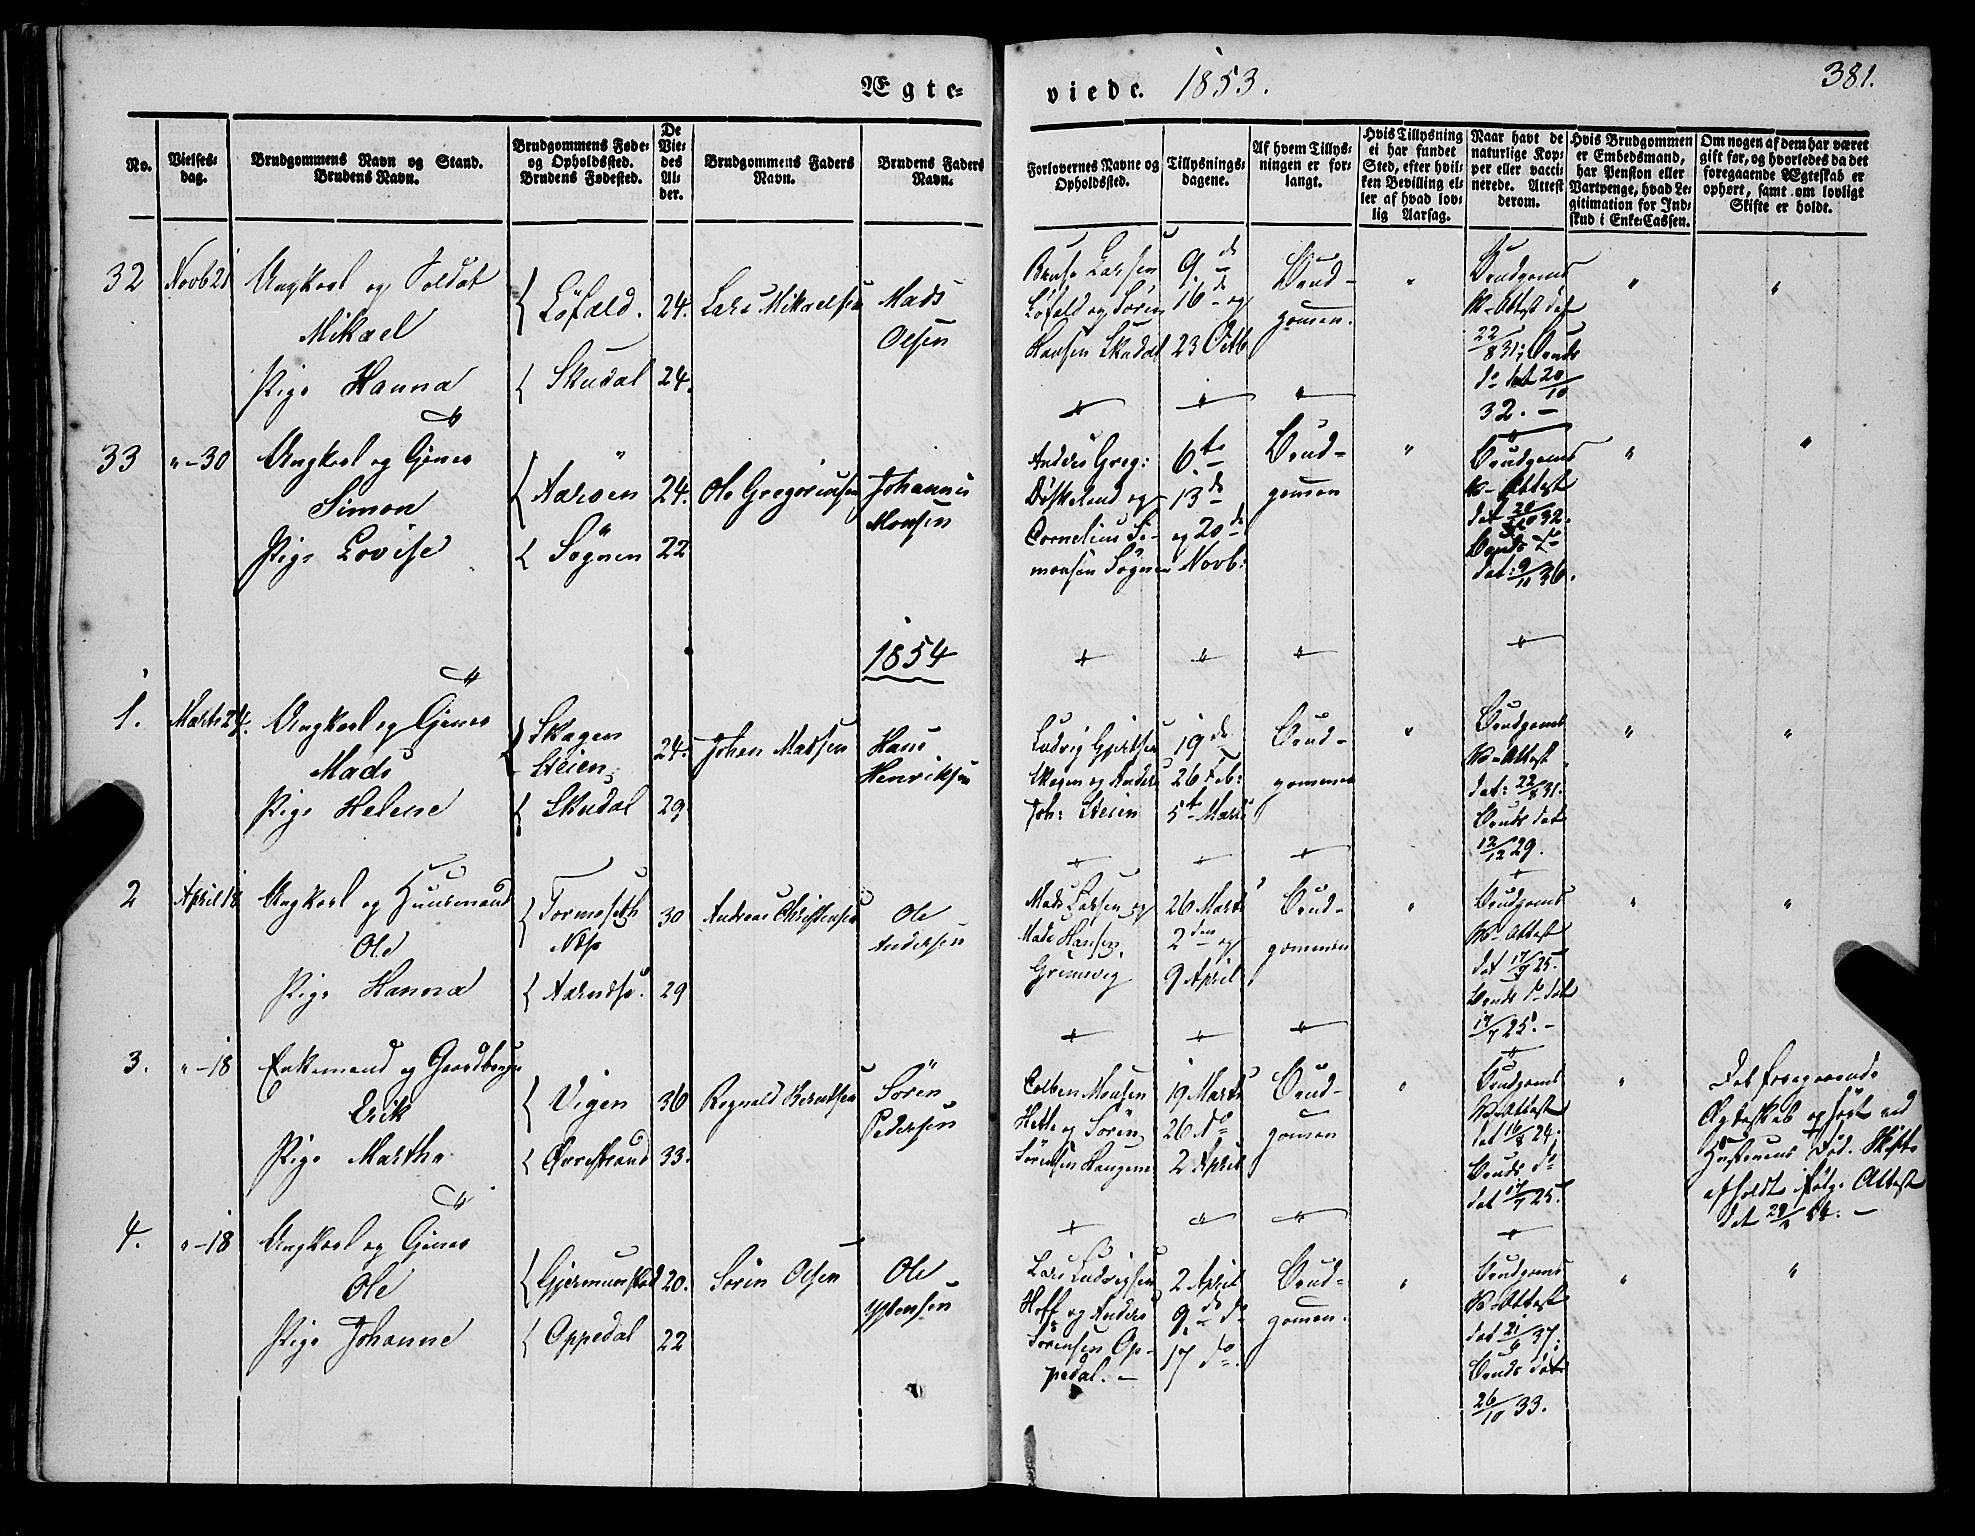 Ægte-
viede. 1853.
381.
No.
Vielses-
dag.
Brudgommens Navn og Stand.
Brudens Navn.
Brudgommens Føde-
og Opholdssted.
Brudens Fødested.
De
Vie-
des
Al-
der.
Brudgommens Faders
Navn.
Brudens Faders
Navn.
Forlovernes Navne og
Opholdssted.
Tillysnings-
dagene.
Af hvem Tillys-
ningen er for-
langt.
Hvis Tillysning
ei har fundet
Sted, efter hvil-
ken Bevilling el-
ler af hvad lov-
lig Aarsag.
Naar havt de
naturlige Kop-
per eller vacci-
nerede. Attest
derom.
Hvis Brudgommen
er Embedsmand,
har Pension eller
Vartpenge, hvad Le-
gitimation for Ind-
skud i Enke-Cassen.
Om nogen af dem har været
gift før, og hvorledes da det
foregaaende Ægteskab er
ophørt, samt om lovligt
Skifte er holdt.
32 Novb 21 Ungkarl og Soldat
Mikael
Pige Hanna
Løfald.
Skudal
24.
24.
Lars Mikaelsen
Mads
Olsen
Larsen
Løfald og Søren
Hansen Skudal
9. de
16 de og
23 Octb
Brud-
gomen.
Brudgoms
V-Attest dat
22/8 31; Bruds
do dat 20/10
32. —
33 " - 30 Ungkarl og Gjener
Simon
Pige Lovise
Aarøen
Søgnen
24.
22
Ole Gregoriusen
Johannes
Monsen
Anders Greg:
Døskeland og
Cornelius Si-
monsen Søgnen
6te
13 de
og 20 de
Novb:
Brud-
gomen
Brudgoms
V-Attest
dat 20/10 32.
Bruds do
dat: 9/11 36.
1854
1. Marts 24. Ungkarl og Gjener
Mads
Pige Helene
Skagen
Steien
Skudal
24.
29.
Johan Madsen
Hans
Henriksen
Ludvig Gjertsen
Skagen og Anders
Joh: Steien
19 de
26 Feb:
5te Marts
Brud-
gommen
Brudgoms
V-Attest
dat: 22/8 31.
Bruds dat
12/12 29.
2 April 18 Ungkarl og Huusmand
Ole
Pige Hanna
Tormoseth
Aarnes.
30
29
Andreas Christensen
Ole
Andersen
Mads Larsen og
Mads Hansen,
Grimsvig
26 Marts
2 den og
9 April
Brud-
gommen
Brudgoms
V-Attest
dat 17/7 25.
Bruds do dat
17/7 25. —
3. " - 18 Enkemand og Gaardbruger
Erik
Pige Martha
Vigen
Ørrestrand
36
33.
Regnald Berntsen
Søren
Pedersen
Colben Monsen
Hetle og Søren
Sørensen Haugene
19 Marts
26 do
2 April
Brud-
gomen
Brudgoms
V-Attest
dat 16/8 24.
Bruds do
dat 17/7 25.
Det foregaaende
Ægteskab ophørt ved
Hustruens Død. Skifte
afholdt ifølge Attest
dat
4. " - 18 Ungkarl og Gjener
Ole
Pige Johanne
Gjermundstad
Oppedal
20.
22
Søren Olsen
Ole
Lars Ludvigsen
Hoff og Anders
Sørensen Op-
pedal. —
2 April
9. de do
17 do.
Brud-
gomen.
Brudgoms
V-Attest
dat 21/6 37;
Bruds dat
26/10 33.